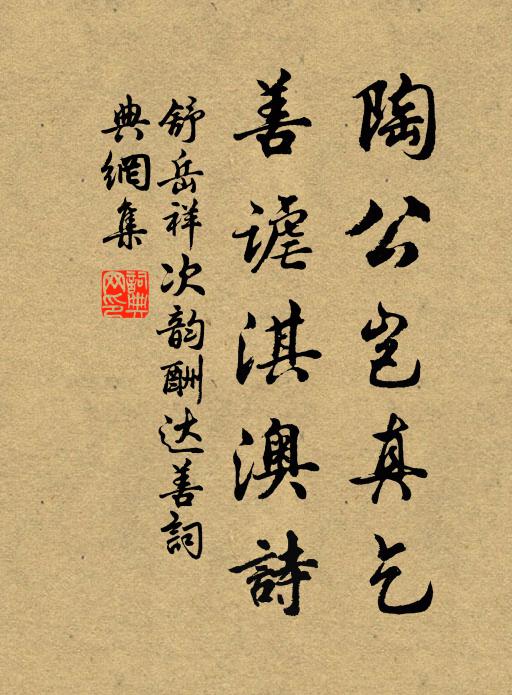 陶公岂真乞
善謔淇澳詩
舒岳祥次韵酬达善詞
典網集
詞典
网印